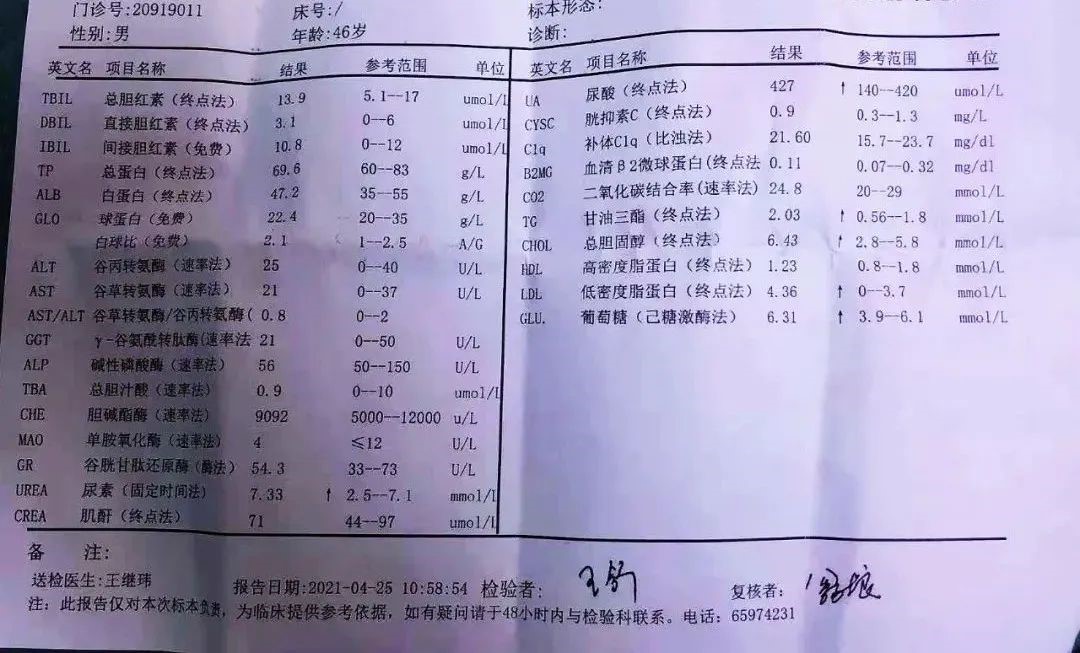 门诊号:20919011 床号:/ 标本形态:
性别:男 年龄:46岁 诊断:
英文名 项目名称 结果 参考范围 单位
TBIL 总胆红素(终点法) 13.9 5.1--17 umol/L
DBIL 直接胆红素(终点法) 3.1 0--6 umol/L
IBIL 间接胆红素(免费) 10.8 0--12 umol/L
TP 总蛋白(终点法) 69.6 60--83 g/L
ALB 白蛋白(终点法) 47.2 35--55 g/L
GLO 球蛋白(免费) 22.4 20--35 g/L
白球比(免费) 2.1 1--2.5 A/G
ALT 谷丙转氨酶(速率法) 25 0--40 U/L
AST 谷草转氨酶(速率法) 21 0--37 U/L
AST/ALT 谷草转氨酶/谷丙转氨酶( 0.8 0--2
GGT γ-谷氨酰转肽酶(速率法 21 0--50 U/L
ALP 碱性磷酸酶(速率法) 56 50--150 U/L
TBA 总胆汁酸(速率法) 0.9 0--10 umol/L
CHE 胆碱酯酶(速率法) 9092 5000--12000 u/L
MAO 单胺氧化酶(速率法) 4 ≤12 U/L
GR 谷胱甘肽还原酶(酶法) 54.3 33--73 U/L
UREA 尿素(固定时间法) 7.33 ↑ 2.5--7.1 mmol/L
CREA 肌酐(终点法) 71 44--97 umol/L
英文名 项目名称 结果 参考范围 单位
UA 尿酸(终点法) 427 ↑ 140--420 umol/L
CYSC 胱抑素C(终点法) 0.9 0.3--1.3 mg/L
C1q 补体C1q(比浊法) 21.60 15.7--23.7 mg/dl
B2MG 血清β2微球蛋白(终点法 0.11 0.07--0.32 mg/dl
CO2 二氧化碳结合率(速率法) 24.8 20--29 mmol/L
TG 甘油三酯(终点法) 2.03 ↑ 0.56--1.8 mmol/L
CHOL 总胆固醇(终点法) 6.43 ↑ 2.8--5.8 mmol/L
HDL 高密度脂蛋白(终点法) 1.23 0.8--1.8 mmol/L
LDL 低密度脂蛋白(终点法) 4.36 ↑ 0--3.7 mmol/L
GLU. 葡萄糖(己糖激酶法) 6.31 ↑ 3.9--6.1 mmol/L
备 注:
送检医生:王继玮 报告日期:2021-04-25 10:58:54 检验者: 王舒 复核者:
注: 此报告仅对本次标本负责,为临床提供参考依据,如有疑问请于48小时内与检验科联系。电话:65974231